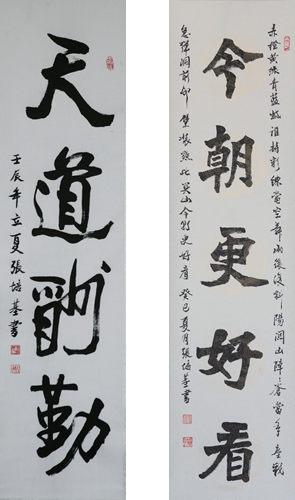 天道酬勤
壬辰年立夏張培基書
赤橙黄綠青藍紫誰持彩練當空舞雨後復斜陽關山陣陣蒼當年鏖戰
今朝更好看
急彈洞前邨壁裝點此關山今朝更好看癸巳夏月張培基書